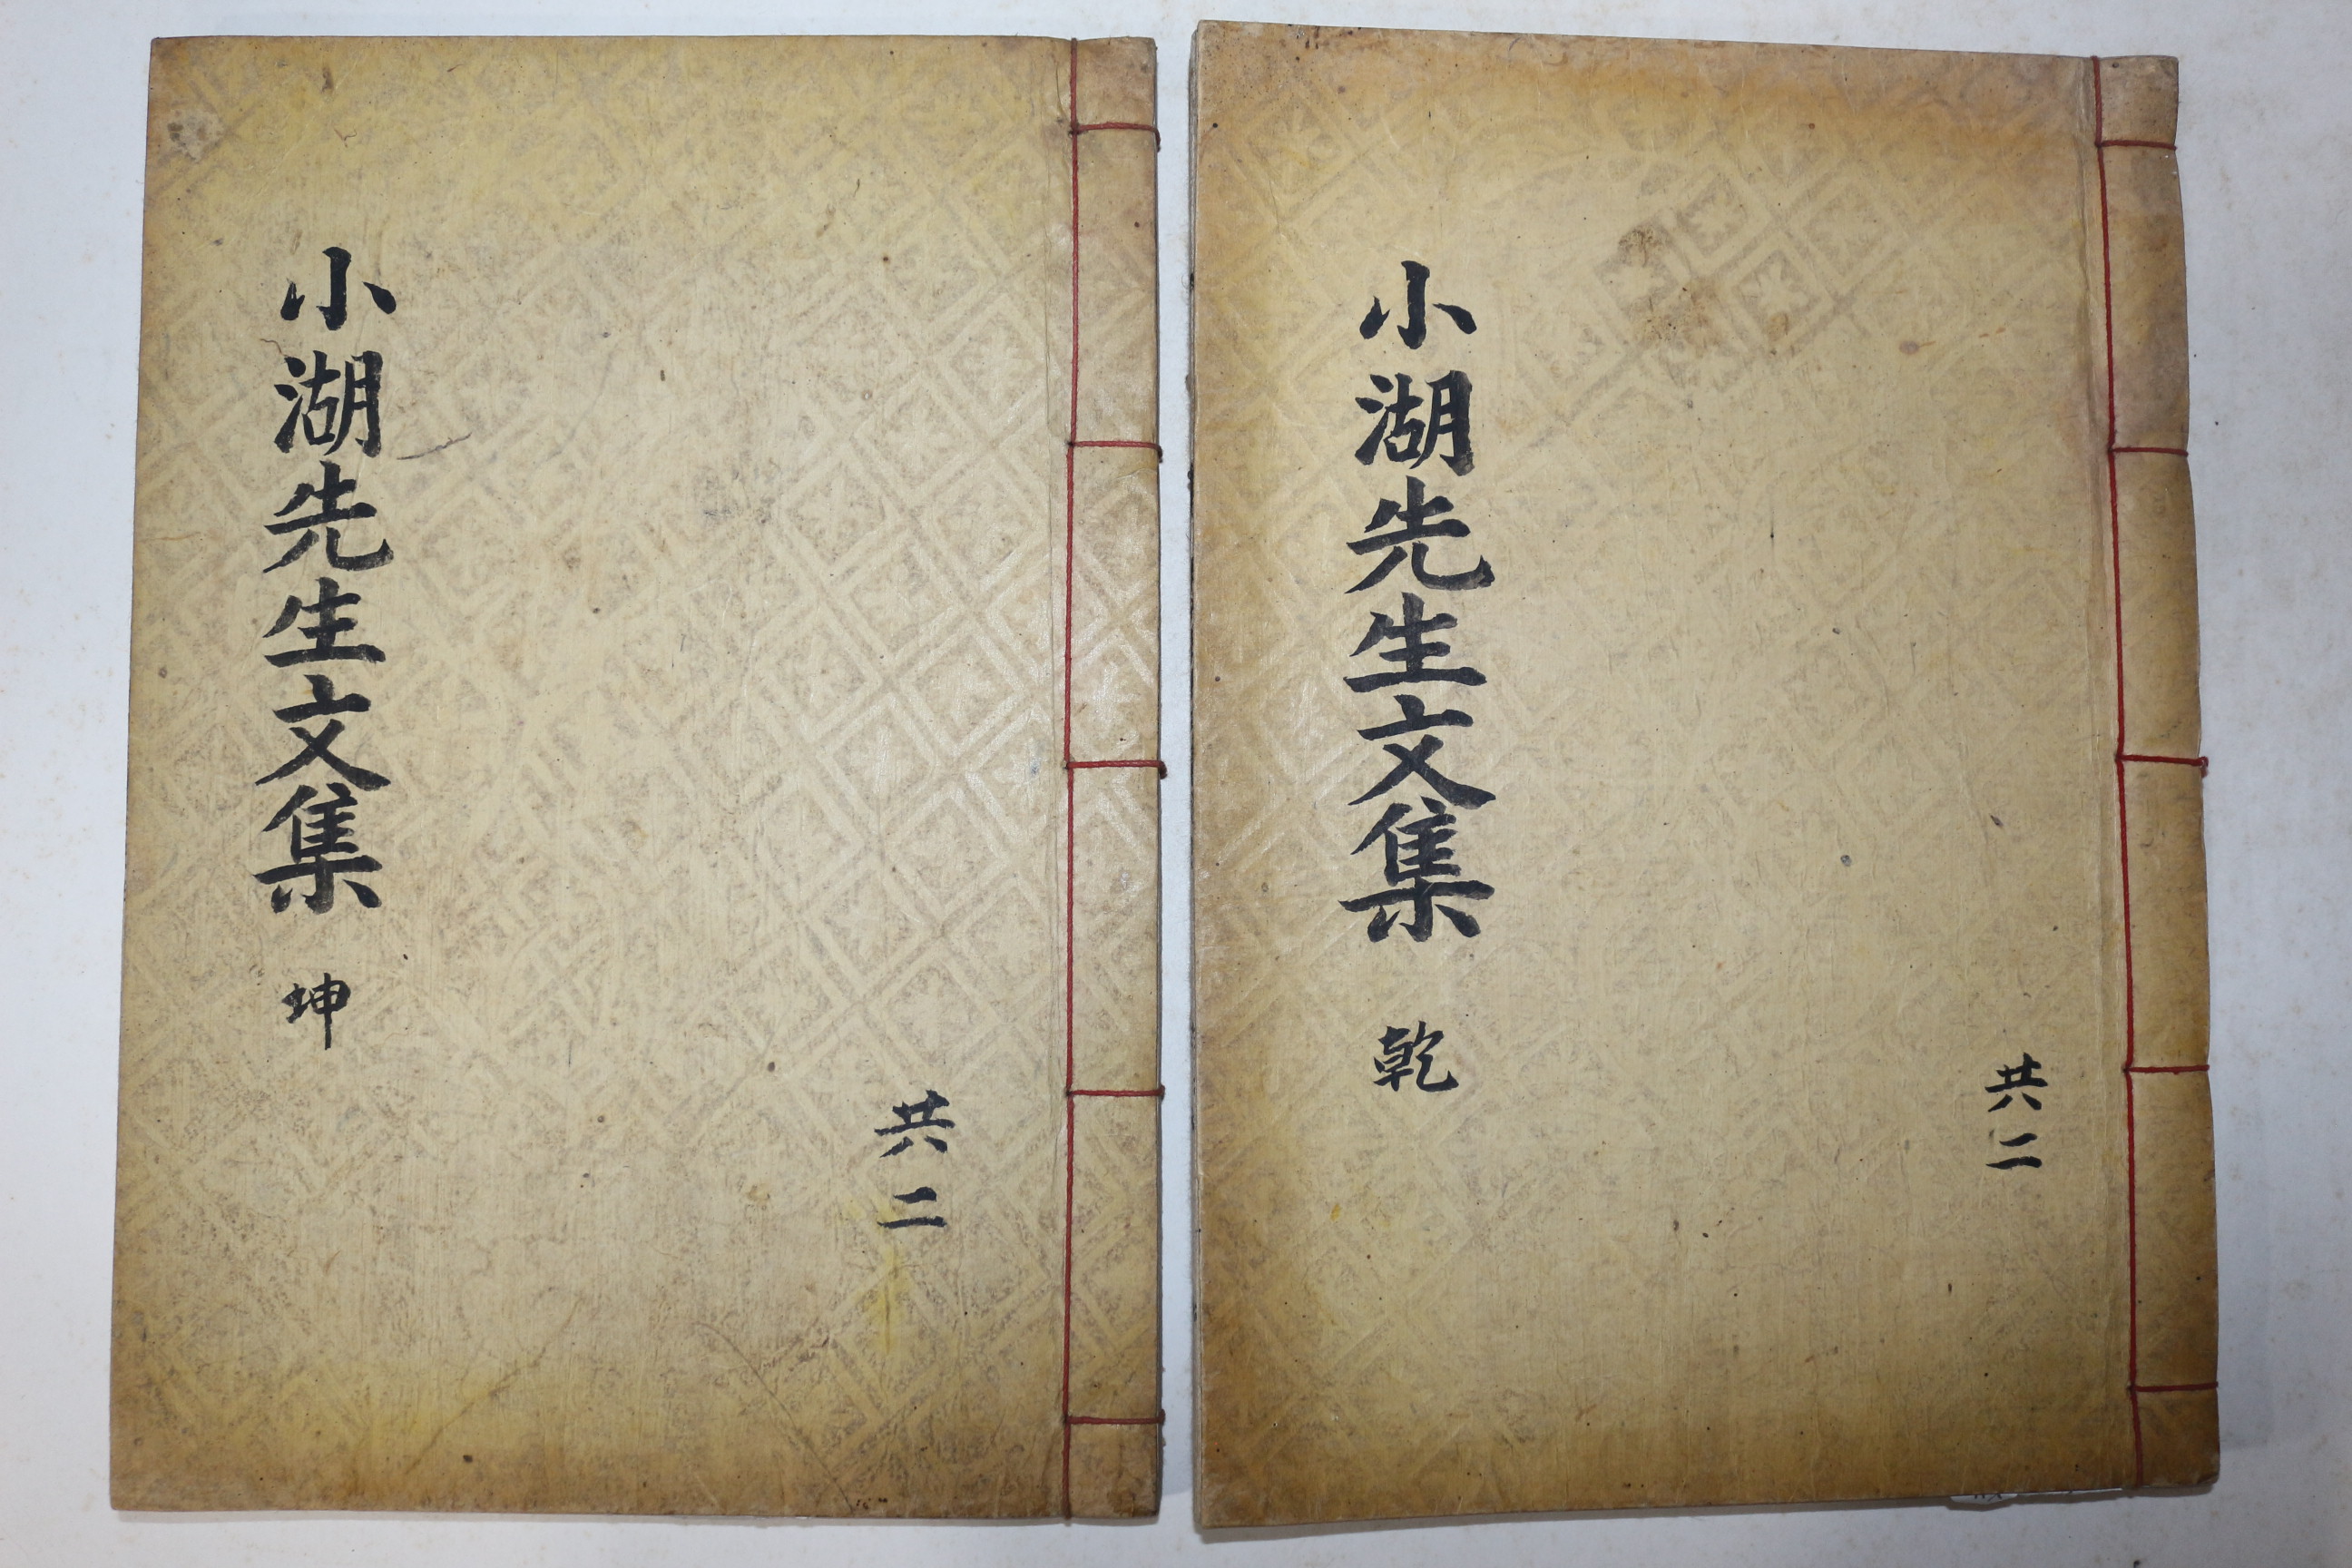 小湖先生文集 乾
共二
小湖先生文集 坤
共二